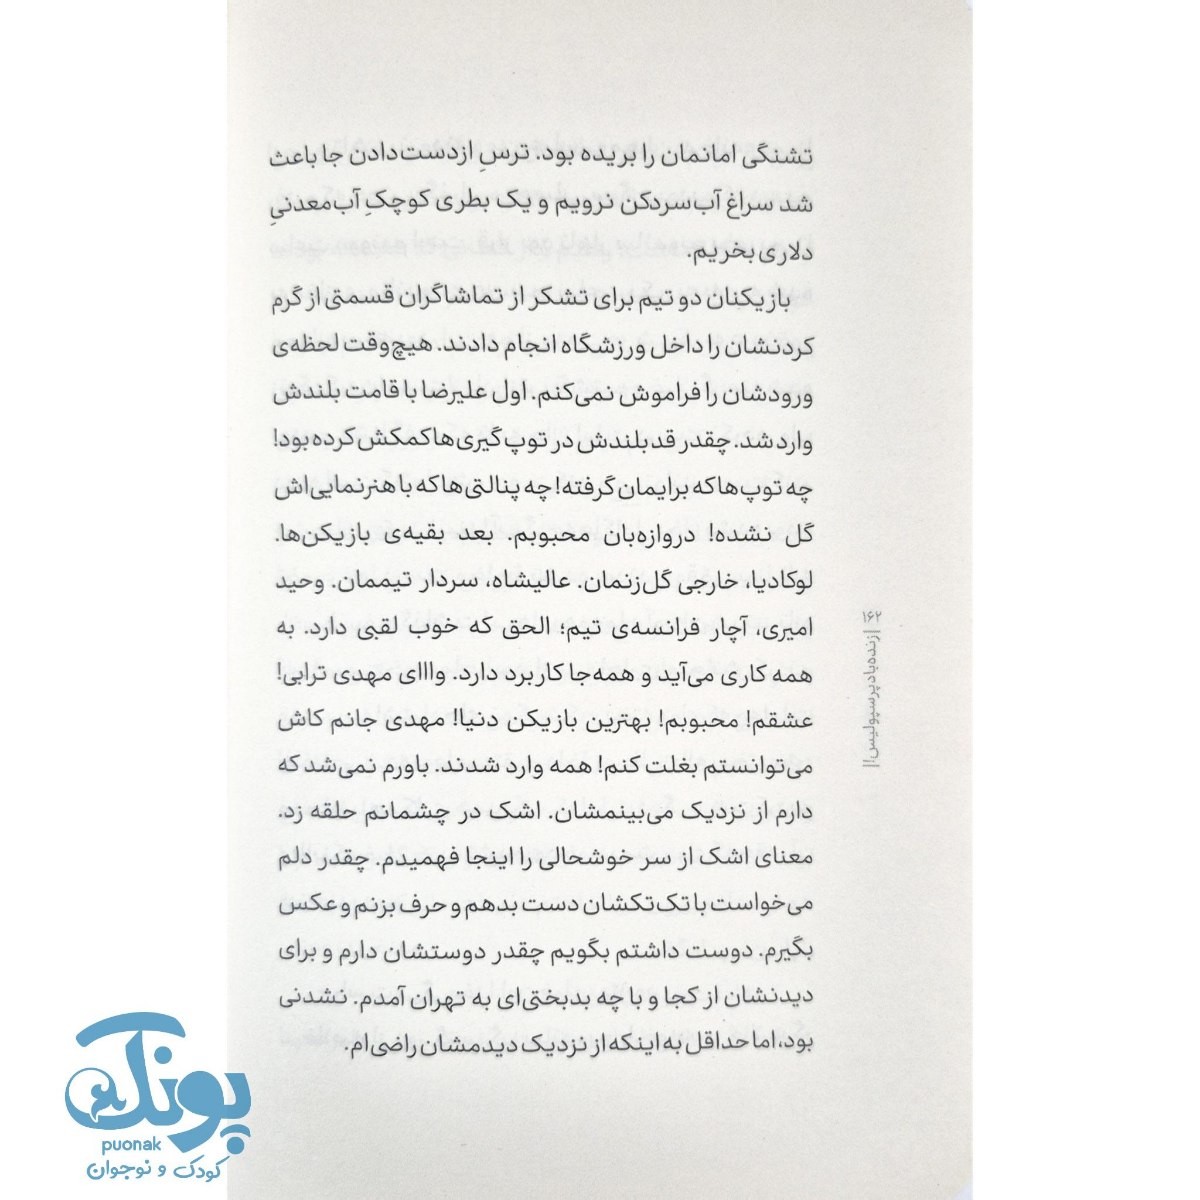 تشنگی امانمان را بریده بود. ترسِ ازدست‌دادن جا باعث
شد سراغ آب‌سردکن نرویم و یک بطری کوچکِ آب‌معدنیِ
دلاری بخریم.
بازیکنان دو تیم برای تشکر از تماشاگران قسمتی از گرم
کردنشان را داخل ورزشگاه انجام دادند. هیچ‌وقت لحظه‌ی
ورودشان را فراموش نمی‌کنم. اول علیرضا با قامت بلندش
وارد شد. چقدر قد بلندش در توپ‌گیری‌ها کمکش کرده بود!
چه توپ‌ها که برایمان گرفته! چه پنالتی‌ها که با هنرنمایی‌اش
گل نشده! دروازه‌بان محبوبم. بعد بقیه‌ی بازیکن‌ها.
لوکادیا، خارجی گل‌زنمان. عالیشاه، سردار تیممان. وحید
امیری، آچار فرانسه‌ی تیم؛ الحق که خوب لقبی دارد. به
همه کاری می‌آید و همه‌جا کاربرد دارد. واااای مهدی ترابی!
عشقم! محبوبم! بهترین بازیکن دنیا! مهدی جانم کاش
می‌توانستم بغلت کنم! همه وارد شدند. باورم نمی‌شد که
دارم از نزدیک می‌بینمشان. اشک در چشمانم حلقه زد.
معنای اشک از سر خوشحالی را اینجا فهمیدم. چقدر دلم
می‌خواست با تک‌تکشان دست بدهم و حرف بزنم و عکس
بگیرم. دوست داشتم بگویم چقدر دوستشان دارم و برای
دیدنشان از کجا و با چه بدبختی‌ای به تهران آمدم. نشدنی
بود، اما حداقل به اینکه از نزدیک دیدمشان راضی‌ام.
۱۶۲ | زنده‌باد پرسپولیس! |
پونک
puonak
کودک و نوجوان